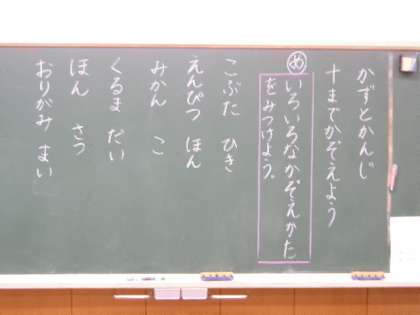 かずとかんじ
十までかぞえよう
め
いろいろなかぞえかた
をみつけよう。
こぶた ひき
えんぴつ ほん
みかん こ
くるま だい
ほん さつ
おりがみ まい